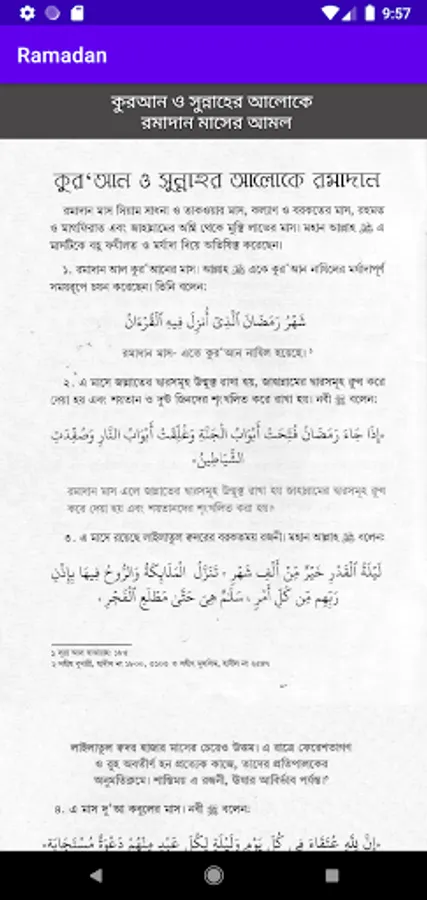 9:57
Ramadan
কুরআন ও সুন্নাহের আলোকে
রমাদান মাসের আমল
কুর‘আন ও সুন্নাহর আলোকে রমাদান
রমাদান মাস সিয়াম সাধনা ও তাকওয়ার মাস, কল্যাণ ও বরকতের মাস, রহমত
ও মাগফিরাত এবং জাহান্নামের অগ্নি থেকে মুক্তি লাভের মাস। মহান আল্লাহ ﷻ এ
মাসটিকে বহু ফযীলত ও মর্যাদা দিয়ে অভিষিক্ত করেছেন।
১. রমাদান আল কুর‘আনের মাস। আল্লাহ ﷻ একে কুর‘আন নাযিলের মর্যাদাপূর্ণ
সময়রূপে চয়ন করেছেন। তিনি বলেন:
شَهْرُ رَمَضَانَ ٱلَّذِىٓ أُنزِلَ فِيهِ ٱلْقُرْءَانُ
রমাদান মাস- এতে কুর‘আন নাযিল হয়েছে।¹
২. এ মাসে জান্নাতের দ্বারসমূহ উন্মুক্ত রাখা হয়, জাহান্নামের দ্বারসমূহ রুদ্ধ করে
দেয়া হয় এবং শয়তান ও দুষ্ট জিনদের শৃংখলিত করে রাখা হয়। নবী ﷺ বলেন:
«إِذَا جَاءَ رَمَضَانُ فُتِحَتْ أَبْوَابُ الْجَنَّةِ وَغُلِّقَتْ أَبْوَابُ النَّارِ وَصُفِّدَتِ
الشَّيَاطِينُ»
রমাদান মাস এলে জান্নাতের দ্বারসমূহ উন্মুক্ত রাখা হয় জাহান্নামের দ্বারসমূহ রুদ্ধ
করে দেয়া হয় এবং শয়তানদের শৃংখলিত করা হয়।²
৩. এ মাসে রয়েছে লাইলাতুল ক্বদরের বরকতময় রজনী। মহান আল্লাহ ﷻ বলেন:
لَيْلَةُ ٱلْقَدْرِ خَيْرٌ مِّنْ أَلْفِ شَهْرٍ ، تَنَزَّلُ ٱلْمَلَٰٓئِكَةُ وَٱلرُّوحُ فِيهَا بِإِذْنِ
رَبِّهِم مِّن كُلِّ أَمْرٍ ، سَلَٰمٌ هِىَ حَتَّىٰ مَطْلَعِ ٱلْفَجْرِ ،
১ সূরা আল বাকারাহ: ১৮৫
২ সহীহ বুখারী, হাদীস নং ১৮০০, ৩১০৩ ও সহীহ মুসলিম, হাদীস নং ২৫৪৭
লাইলাতুল ক্বদর হাজার মাসের চেয়েও উত্তম। এ রাত্রে ফেরেশতাগণ
ও রূহ অবতীর্ণ হন প্রত্যেক কাজে, তাদের প্রতিপালকের
অনুমতিক্রমে। শান্তিময় এ রজনী, ঊষার আবির্ভাব পর্যন্ত।
৪. এ মাস দু‘আ কবুলের মাস। নবী ﷺ বলেন:
«إِنَّ لِلَّهِ عُتَقَاءَ فِي كُلِّ يَوْمٍ وَلَيْلَةٍ لِكُلِّ عَبْدٍ مِنْهُمْ دَعْوَةٌ مُسْتَجَابَةٌ»